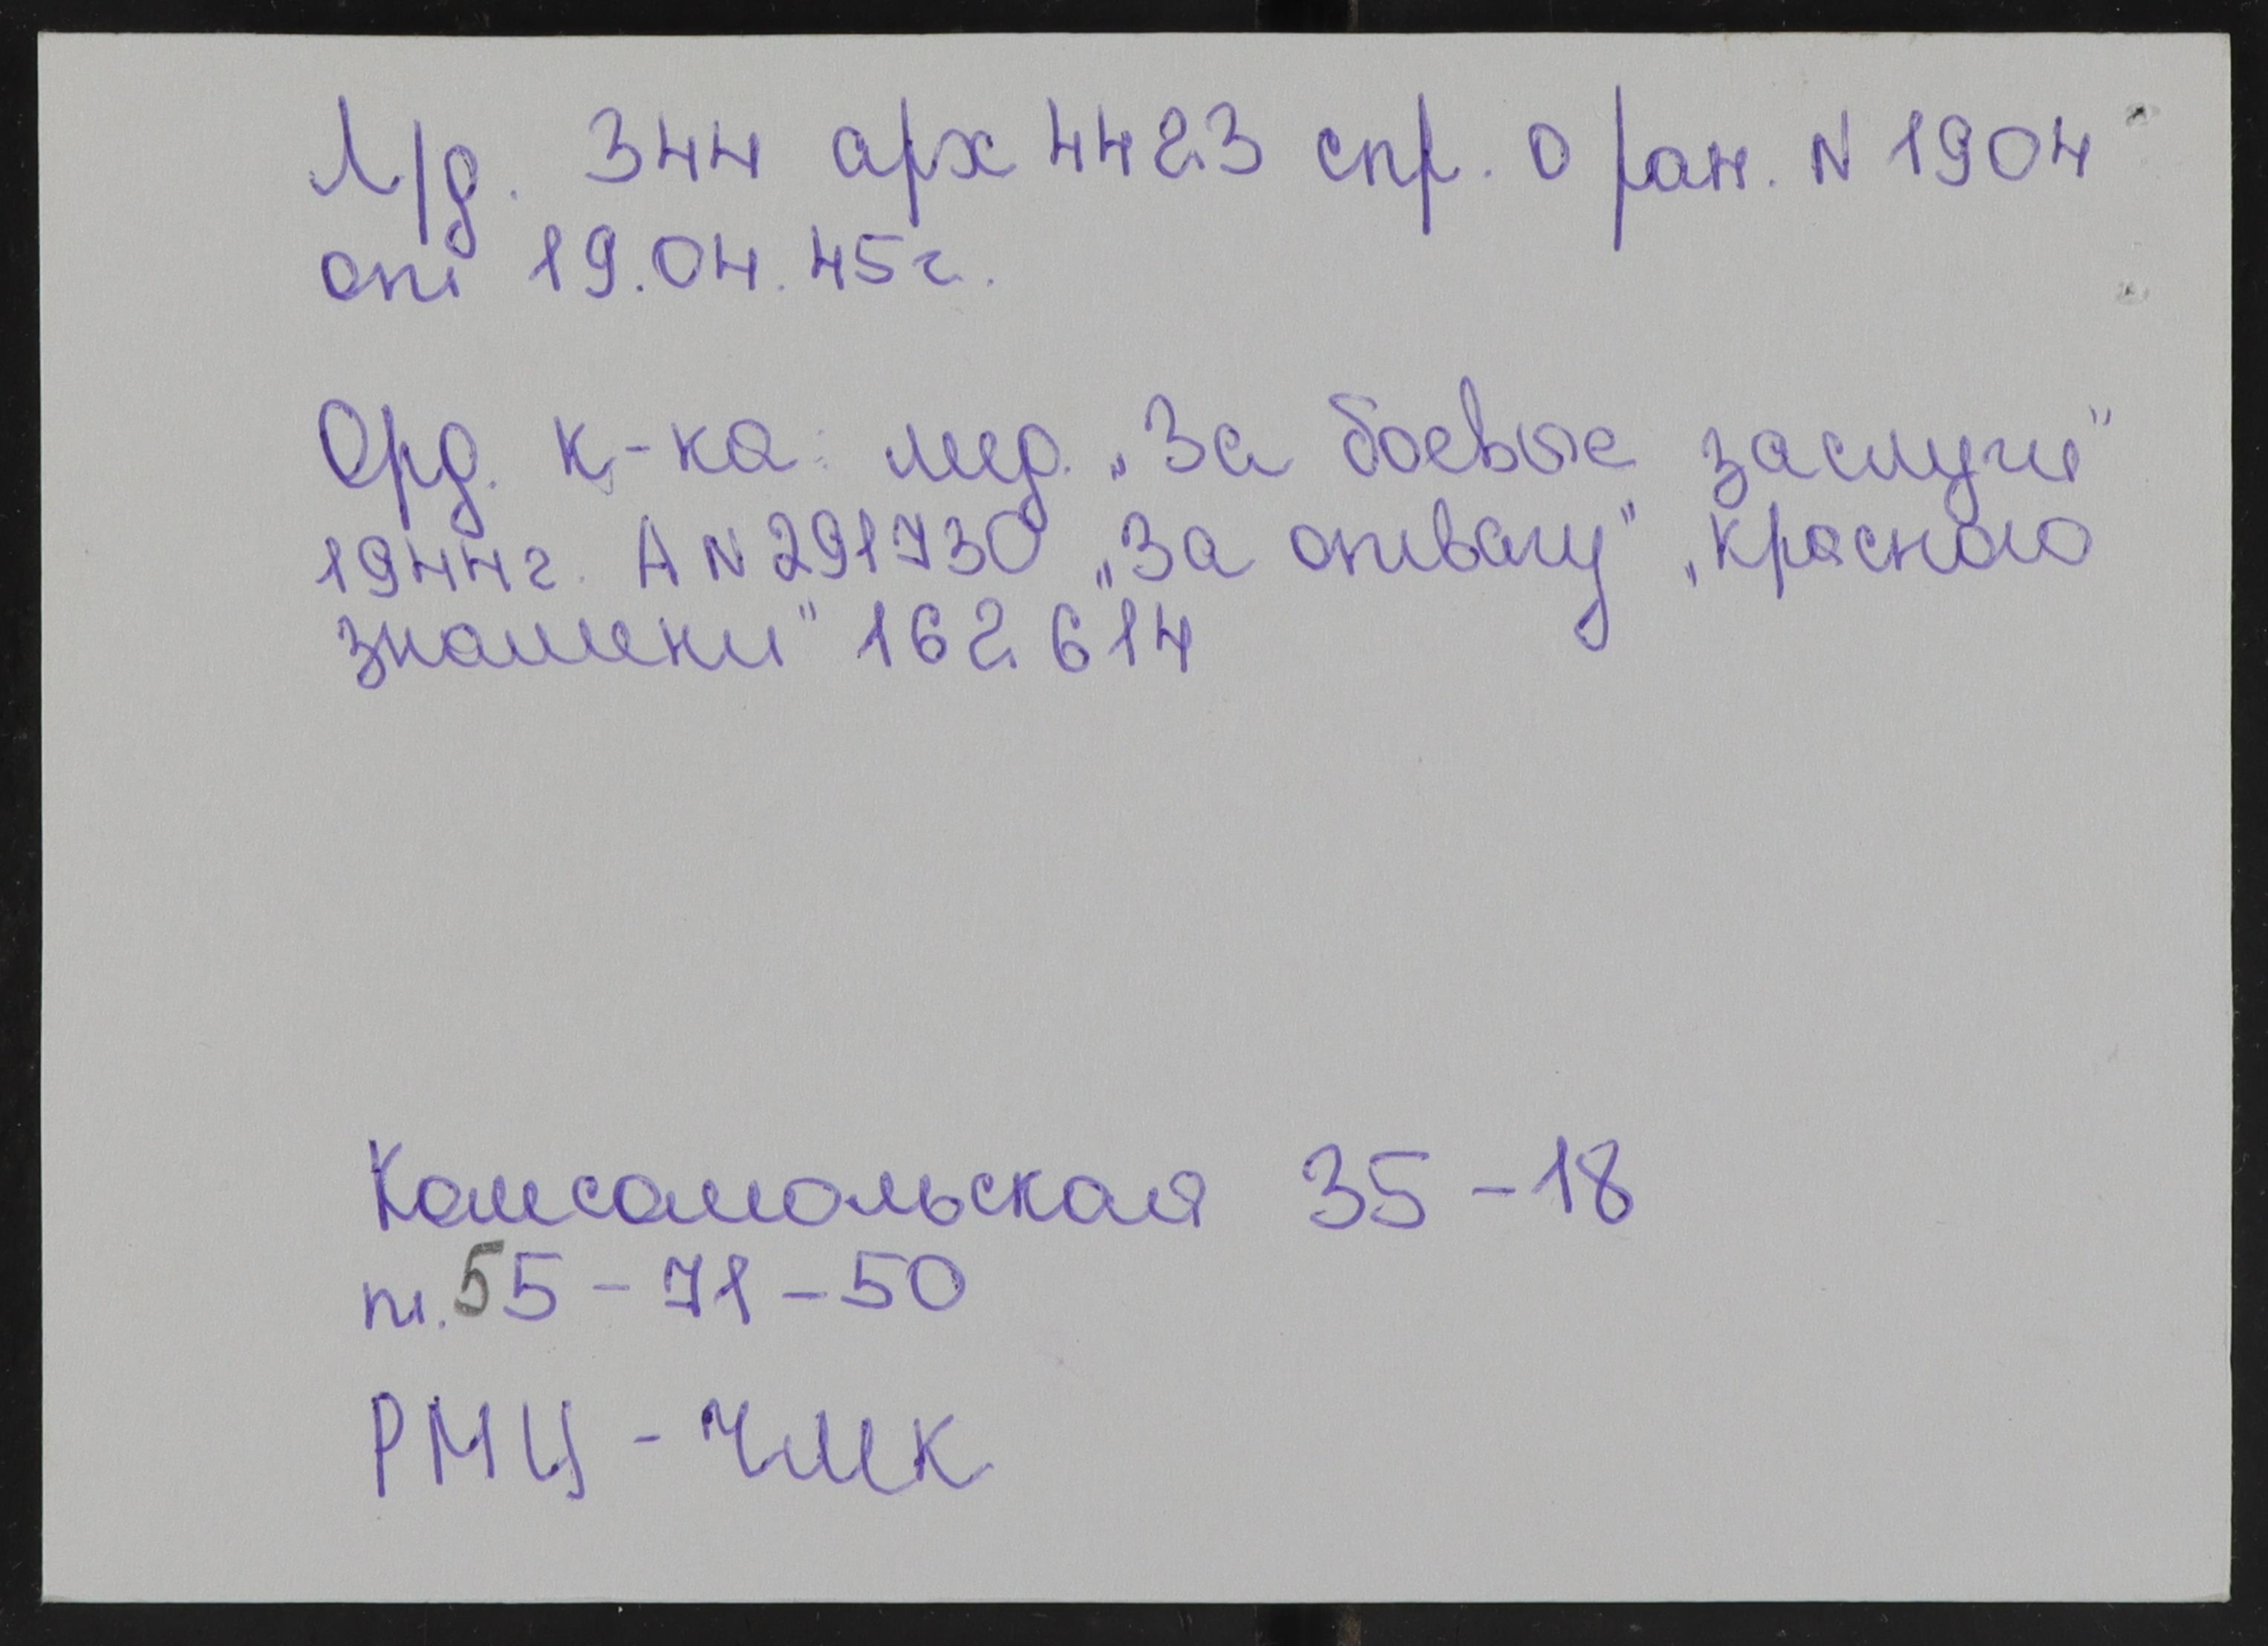 Л/д. 344 арх 4423 спр. о ран. N 1904
от 19.04.45г.
Орд. к-ка: мед. „За боевые заслуги"
1944г. А N 291730 „За отвагу" „Красного
знамени" 162614
Комсомольская 35-18
т. 55-71-50
РМЦ - ЧМК